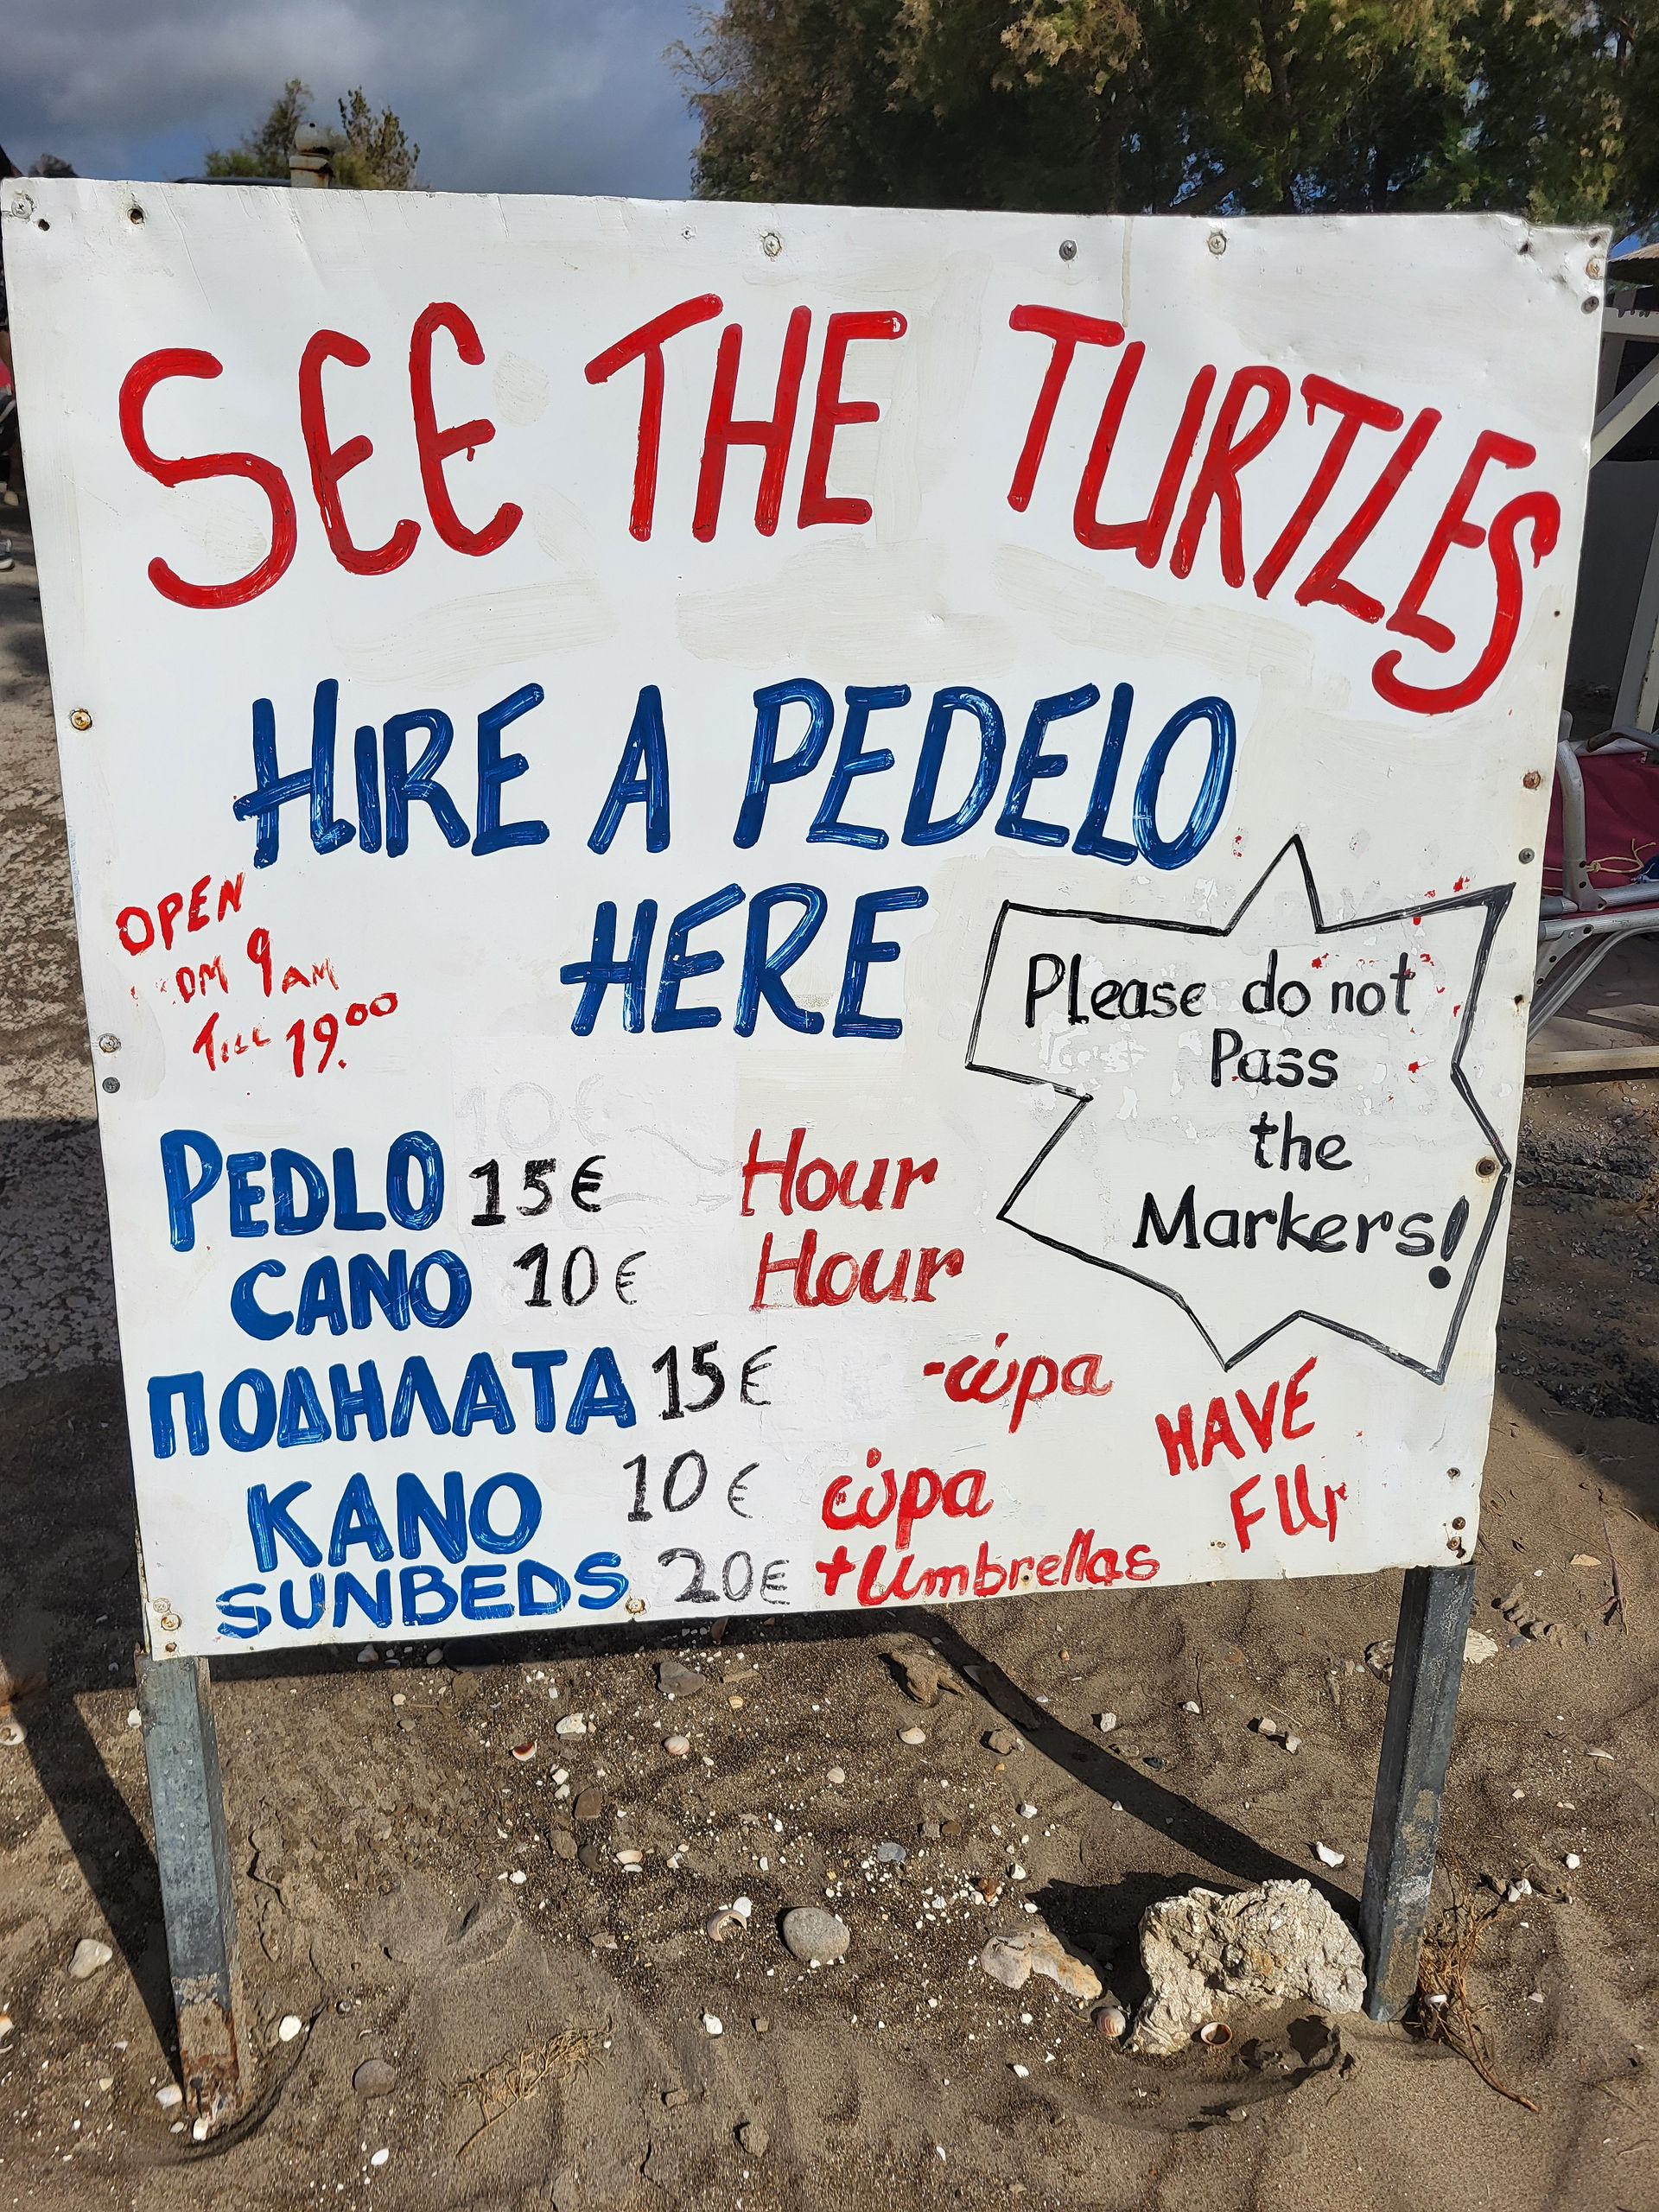 SEE THE TURTLES
HIRE A PEDELO
HERE
OPEN
OM 9 AM
TILL 19.00
Please do not
Pass
the
Markers!
PEDLO 15€ Hour
CANO 10€ Hour
ΠΟΔΗΛΑΤΑ 15€ -ώρα
KANO 10€ ώρα
SUNBEDS 20€ +Umbrellas
HAVE